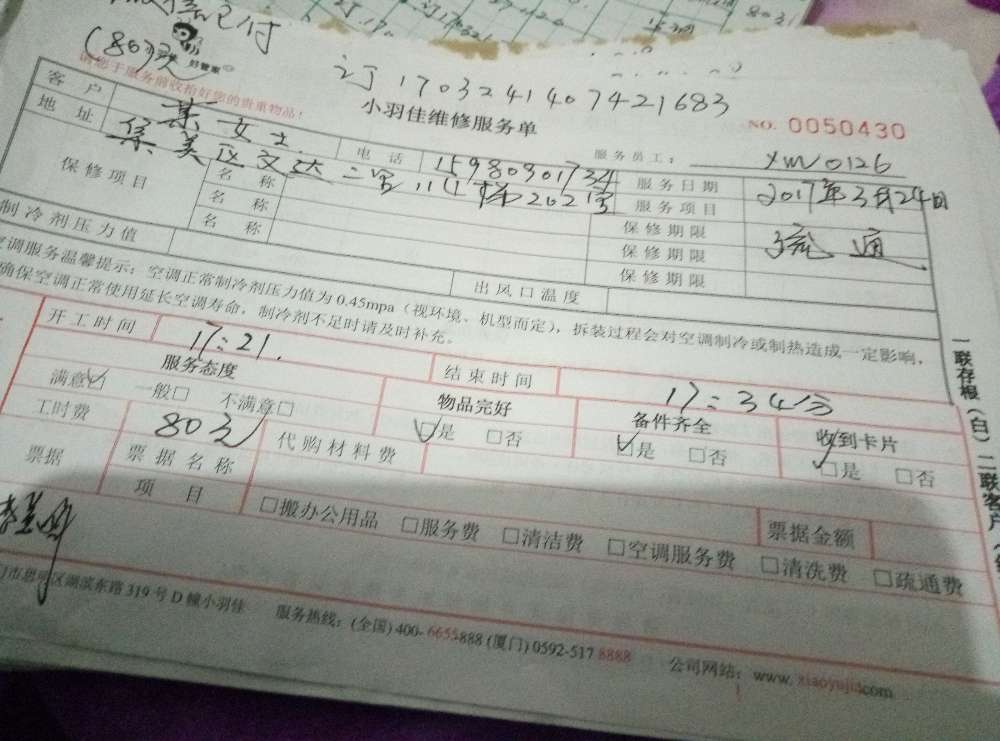 订1703241407421683
(80元)
好管家
请您于服务前收拾好您的贵重物品！
小羽佳维修服务单
NO. 0050430
服务员工： XM0126
客户 女士 电话 服务日期 2017年3月24日
地址 集美区文达 202号 服务项目 疏通
保修项目 名称 保修期限
名称 保修期限
名称 保修期限
制冷剂压力值 出风口温度
空调服务温馨提示：空调正常制冷剂压力值为0.45mpa（视环境、机型而定），拆装过程会对空调制冷或制热造成一定影响，
确保空调正常使用延长空调寿命，制冷剂不足时请及时补充。
开工时间 17:21. 结束时间 17:34分
服务态度 物品完好 备件齐全 收到卡片
满意□ 一般□ 不满意□ □是 □否 □是 □否 □是 □否
工时费 80元 代购材料费
票据 票据名称 票据金额
项目 □搬办公用品 □服务费 □清洁费 □空调服务费 □清洗费 □疏通费
门市思明区湖滨东路319号D幢小羽佳 服务热线：(全国) 400-6655888 (厦门) 0592-5178888 公司网站：www.xiaoyujia.com
一联存根（白）二联客户